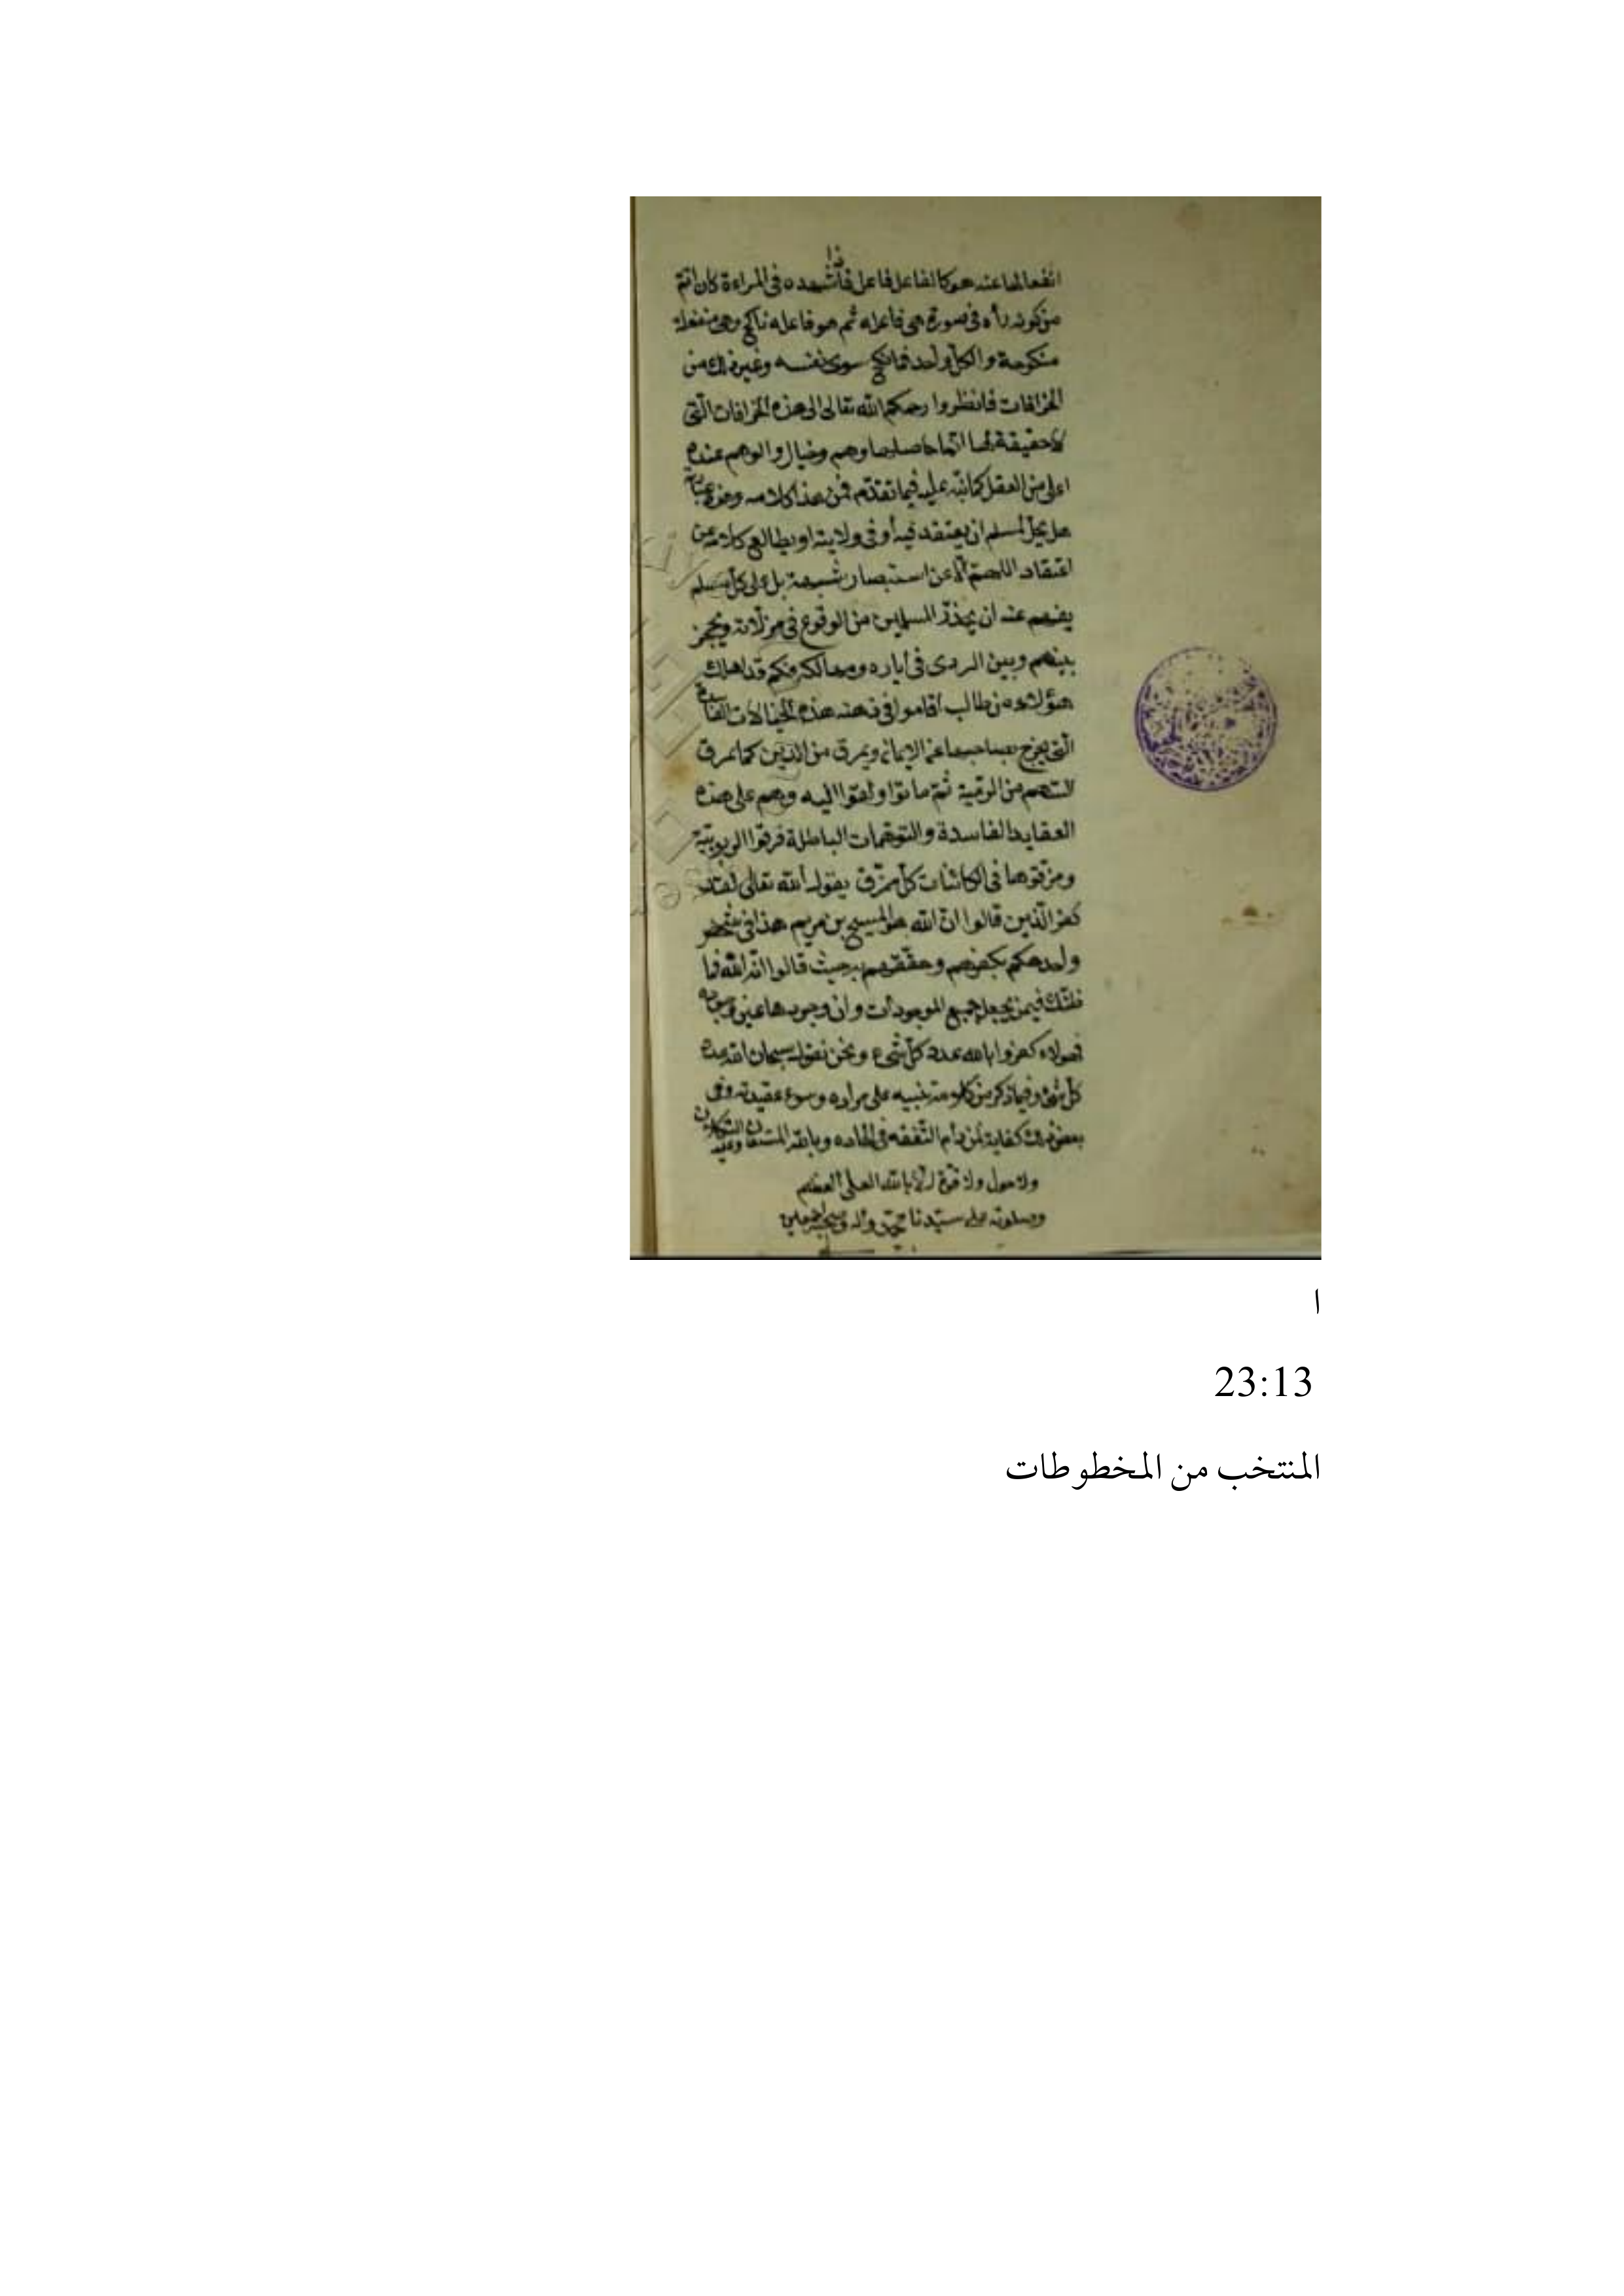 انفعالها عنه هو كالفاعل فاعل فاذا شهده في المراءة كان اتم
من كونه رأه في صورة هي فاعله ثم هو فاعله ناكح وهي منفعله
منكوحة والكل واحد فما نكح سوى نفسه وغير ذلك من
الخرافات فانظروا رحمكم الله تعالى الى هذه الخرافات الّتي
لا حقيقة لها انما حاصلها وهم وخيال والوهم عنده
اعلى من العقل كما نبّه عليه فيما تقدّم فمن هذا كلامه وهذه
هل يحل لمسلم ان يعتقد فيه أو في ولايته او يطالع كلامه عن
اعتقاد اللهم الّا عن استبصار شبهة بل على كل مسلم
يفهم عنه ان يحذّر المسلمين من الوقوع في مزلاته ويحجز
بينهم وبين الردى في أباره ومهالكه فكم قد اهلك
هؤلاء من طالب اقاموا في ذهنه هذه الخيالات الفاسدة
الّتي يخرج بها صاحبها عن الايمان ويمرق من الدّين كما يمرق
السّهم من الرميّة ثمّ ماتوا ولقوا اليه وهم على هذه
العقايد الفاسدة والتوهّمات الباطلة فرقوا الربوبيّة
ومزقوها في الكائنات كلّ ممزّق يقول الله تعالى لقد
كفر الّذين قالوا انّ الله هو المسيح بن مريم هذا في شخص
واحد حكم بكفرهم وحققهم به حيث قالوا انّه الله فما
ظنّك فيمن يجعل جميع الموجودات وان وجودها عين وجوده
فهولاء كفروا بالله عدد كلّ شيء ونحن نقول سبحان الله عدد
كلّ شيء وفيما ذكر من كلامه تنبيه على مراده وسوء عقيدته وفي
بعض ذلك كفاية لمن رام التّفقه في الحاده وبالله المستعان وعليه التّكلان
ولا حول ولا قوة الّا بالله العلي العظيم
وصلوته على سيّدنا محمّد واله وصحبه اجمعين
ا
23:13
المنتخب من المخطوطات